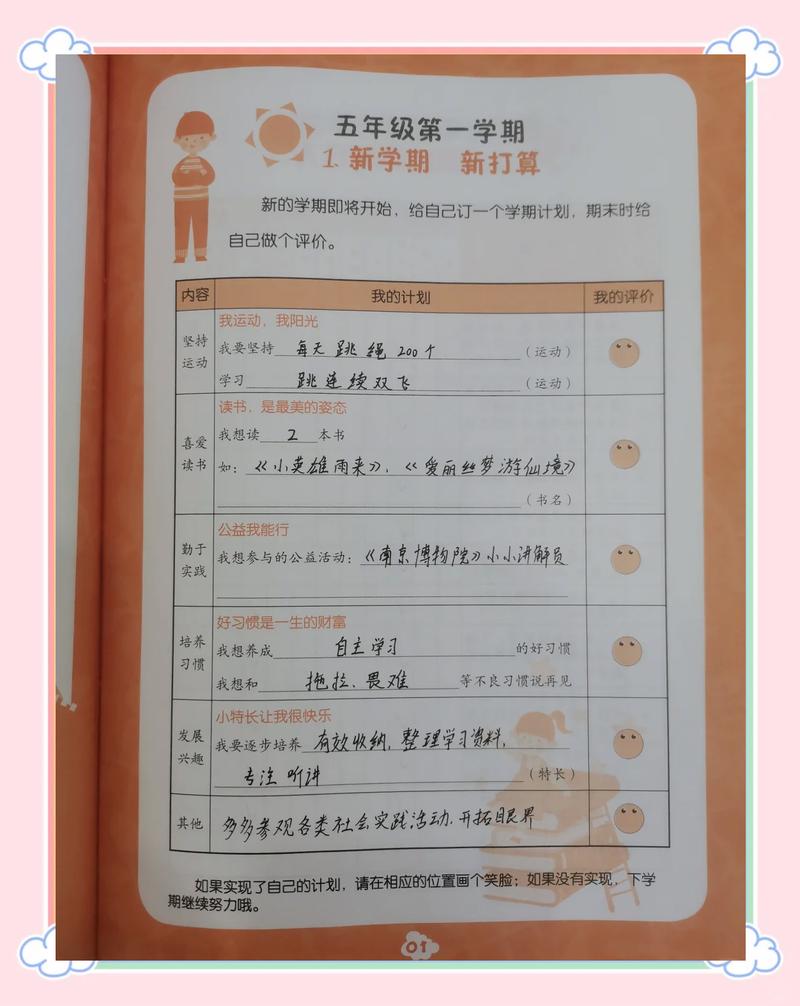 五年级第一学期
1.新学期 新打算
新的学期即将开始，给自己订一个学期计划，期末时给
自己做个评价。
内容 我的计划 我的评价
坚持
运动
我运动，我阳光
我要坚持 每天跳绳200个（运动）
学习 跳连续双飞（运动）
喜爱
读书
读书，是最美的姿态
我想读 2 本书
如：《小英雄雨来》、《爱丽丝梦游仙境》
（书名）
勤于
实践
公益我能行
我想参与的公益活动：《南京博物院》小小讲解员
培养
习惯
好习惯是一生的财富
我想养成 自主学习 的好习惯
我想和 拖拉、畏难 等不良习惯说再见
发展
兴趣
小特长让我很快乐
我要逐步培养 有效收纳，整理学习资料，
专注听讲（特长）
其他
多多参观各类社会实践活动，开拓眼界
如果实现了自己的计划，请在相应的位置画个笑脸；如果没有实现，下学
期继续努力哦。
01